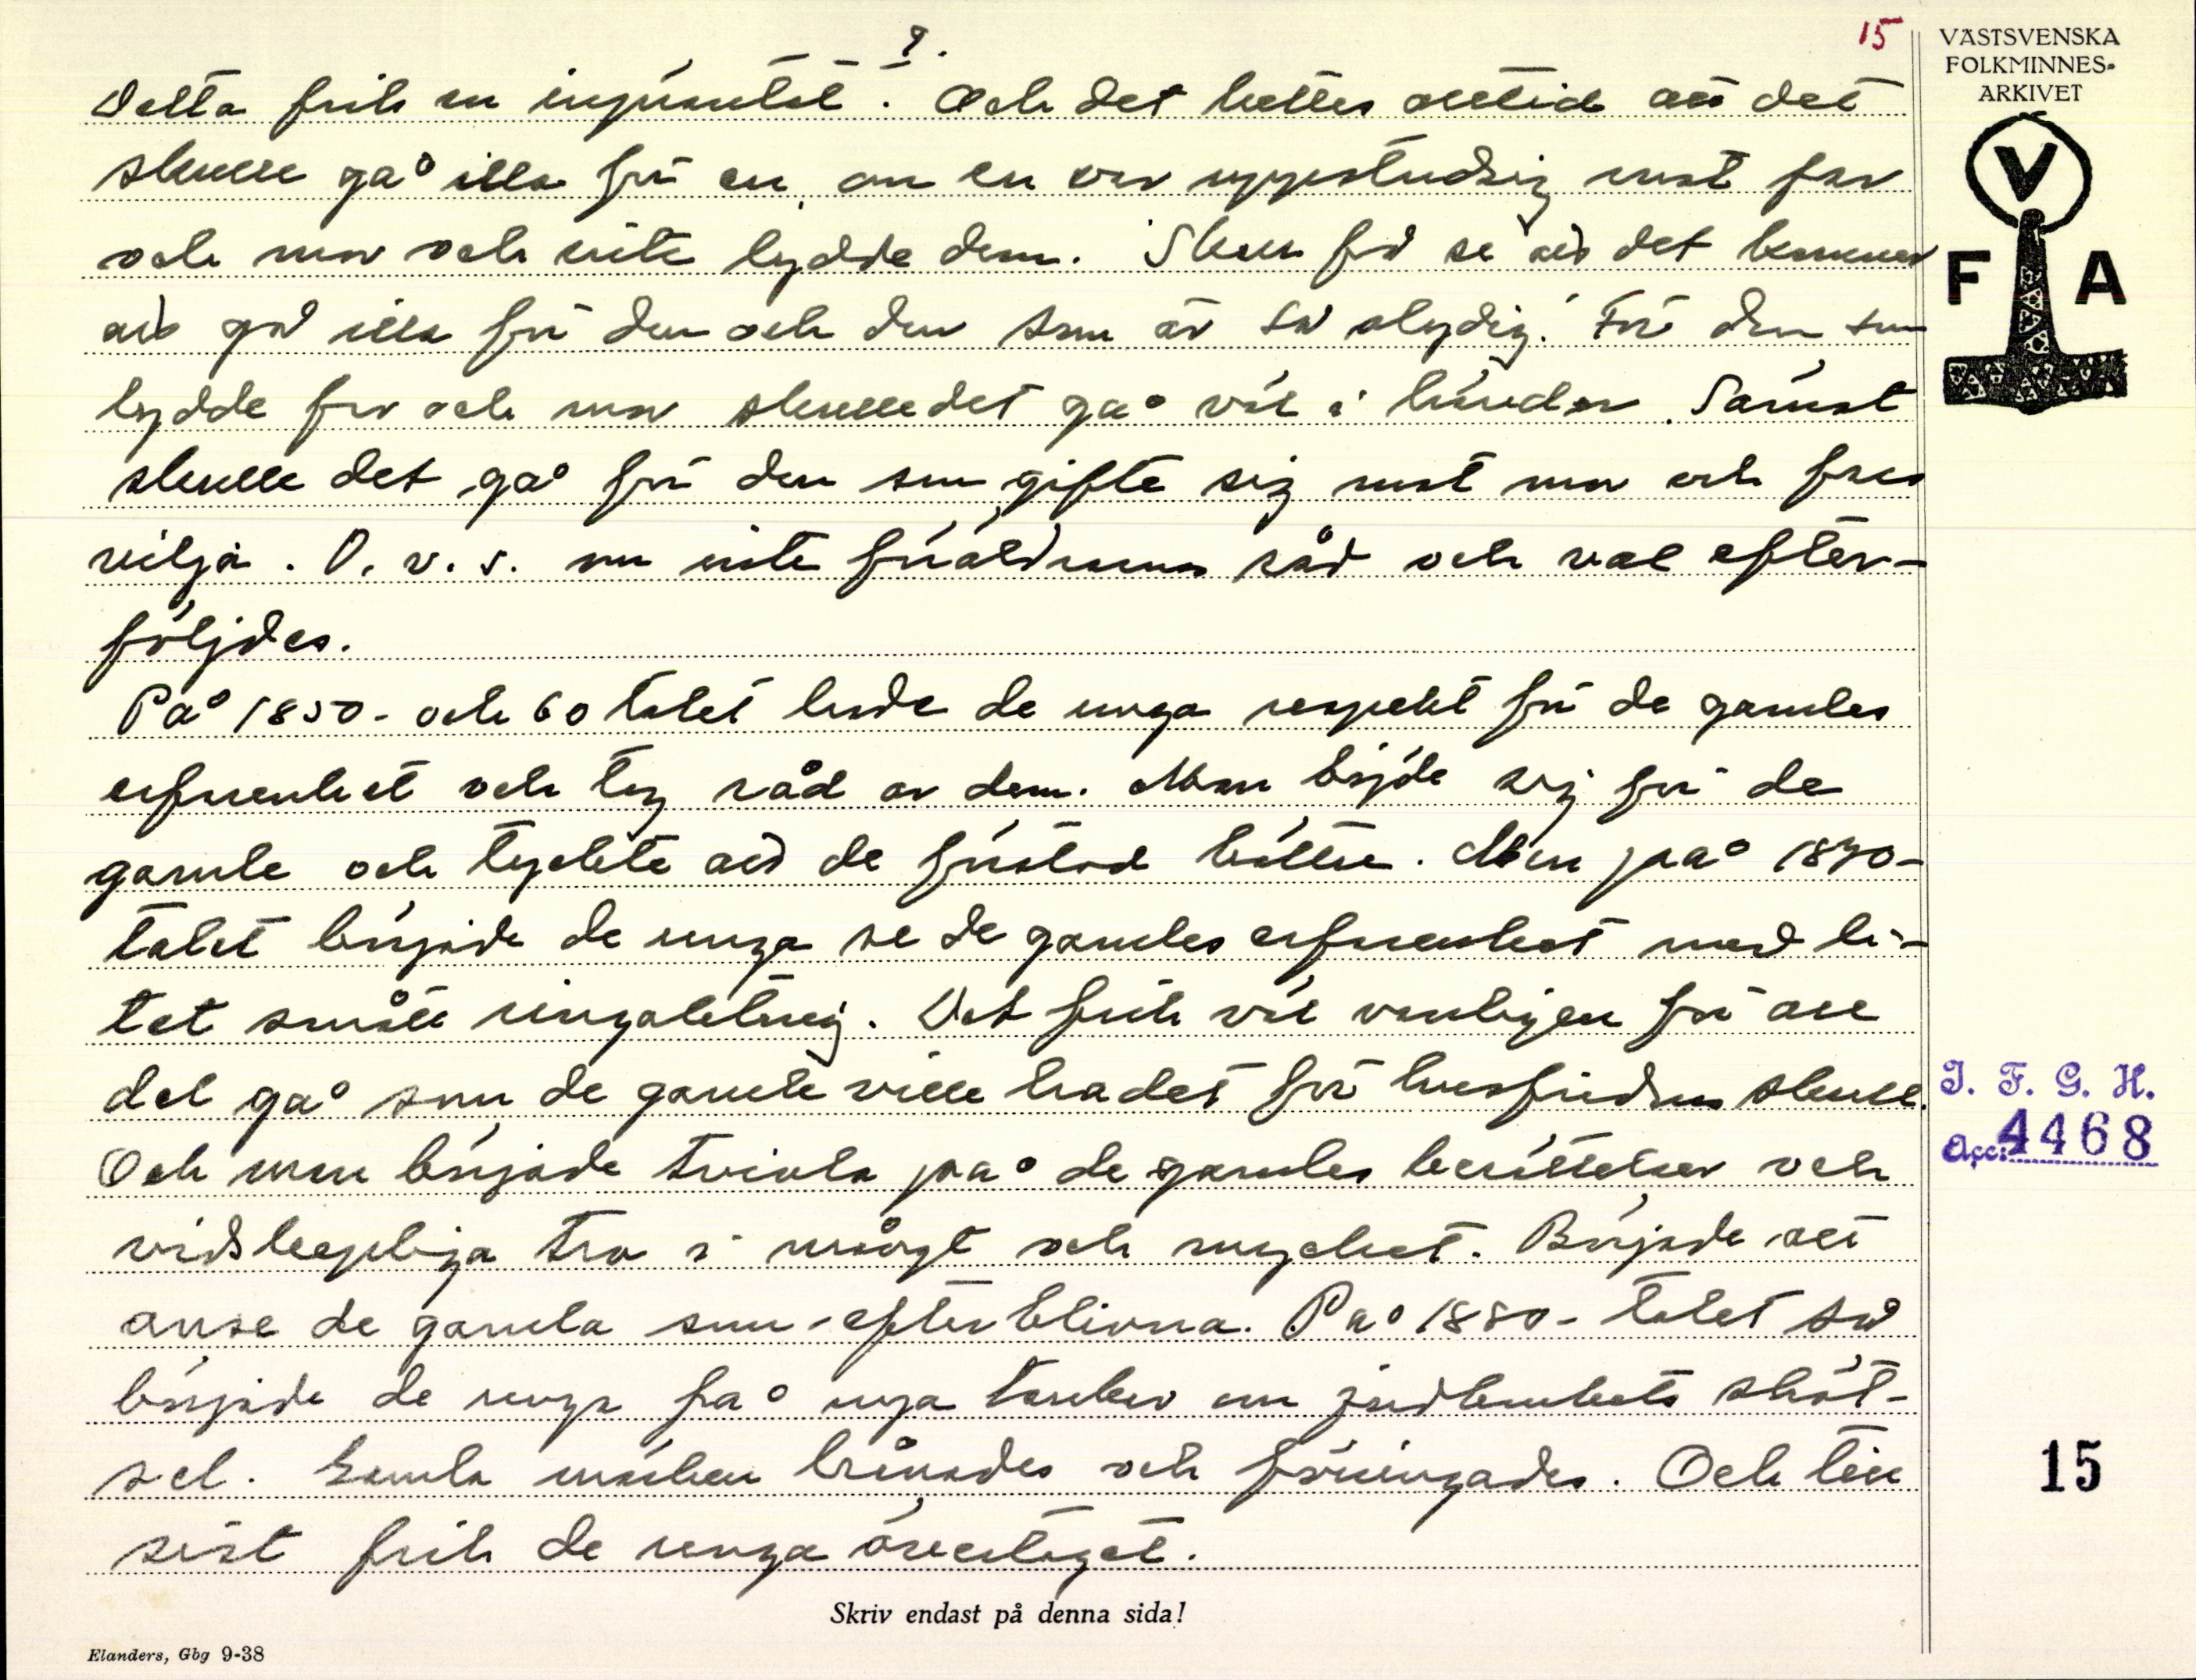 9.
15
VÄSTSVENSKA
FOLKMINNES-
ARKIVET
V
F A
Detta fick en inpräntat. Och det hettes alltid att det
skulle gå illa för en, om en var uppstudsig mot far
och mor och inte lydde dem. Skall få se att det kommer
att gå illa för den och den som är så olydig. För den som
lydde far och mor skulle det gå väl i händer. Sämst
skulle det gå för den som gifte sig mot mor och fars
vilja. D. v. s. om inte föräldrarnas råd och val efter-
följdes.
På 1850- och 60 talet hade de unga respekt för de gamles
erfarenhet och tog råd av dem. Man böjde sig för de
gamle och tyckte att de förstod bättre. Men på 1870-
talet började de unga se de gamles erfarenhet med li-
tet smått ringaktning. Det fick väl vanligen för all
del gå som de gamle ville ha det för husfridens skull.
Och man började tvivla på de gamles berättelser och
vidskepliga tro i mångt och mycket. Började att
anse de gamla som efterblivna. På 1880- talet så
började de unga få nya tankar om jordbrukets sköt-
sel. Gamla
och föryngades. Och till
sist fick de unga övertaget.
I. F. G. H.
Acc. 4468
15
Skriv endast på denna sida!
Elanders, Gbg 9-38